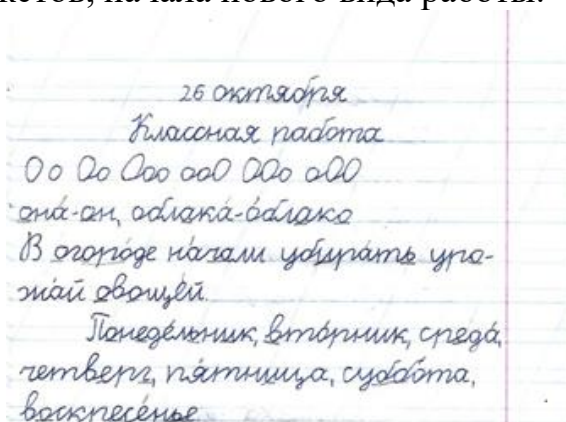 кетов, начала нового вида работы.
26 октября
Классная работа
Оо Оо Ооо ооО ООо оОО
она́-он, облака́-о́блако
В огоро́де на́чали убира́ть уро-
жа́й овоще́й.
Понеде́льник, вто́рник, среда́,
четве́рг, пя́тница, суббо́та,
воскресе́нье